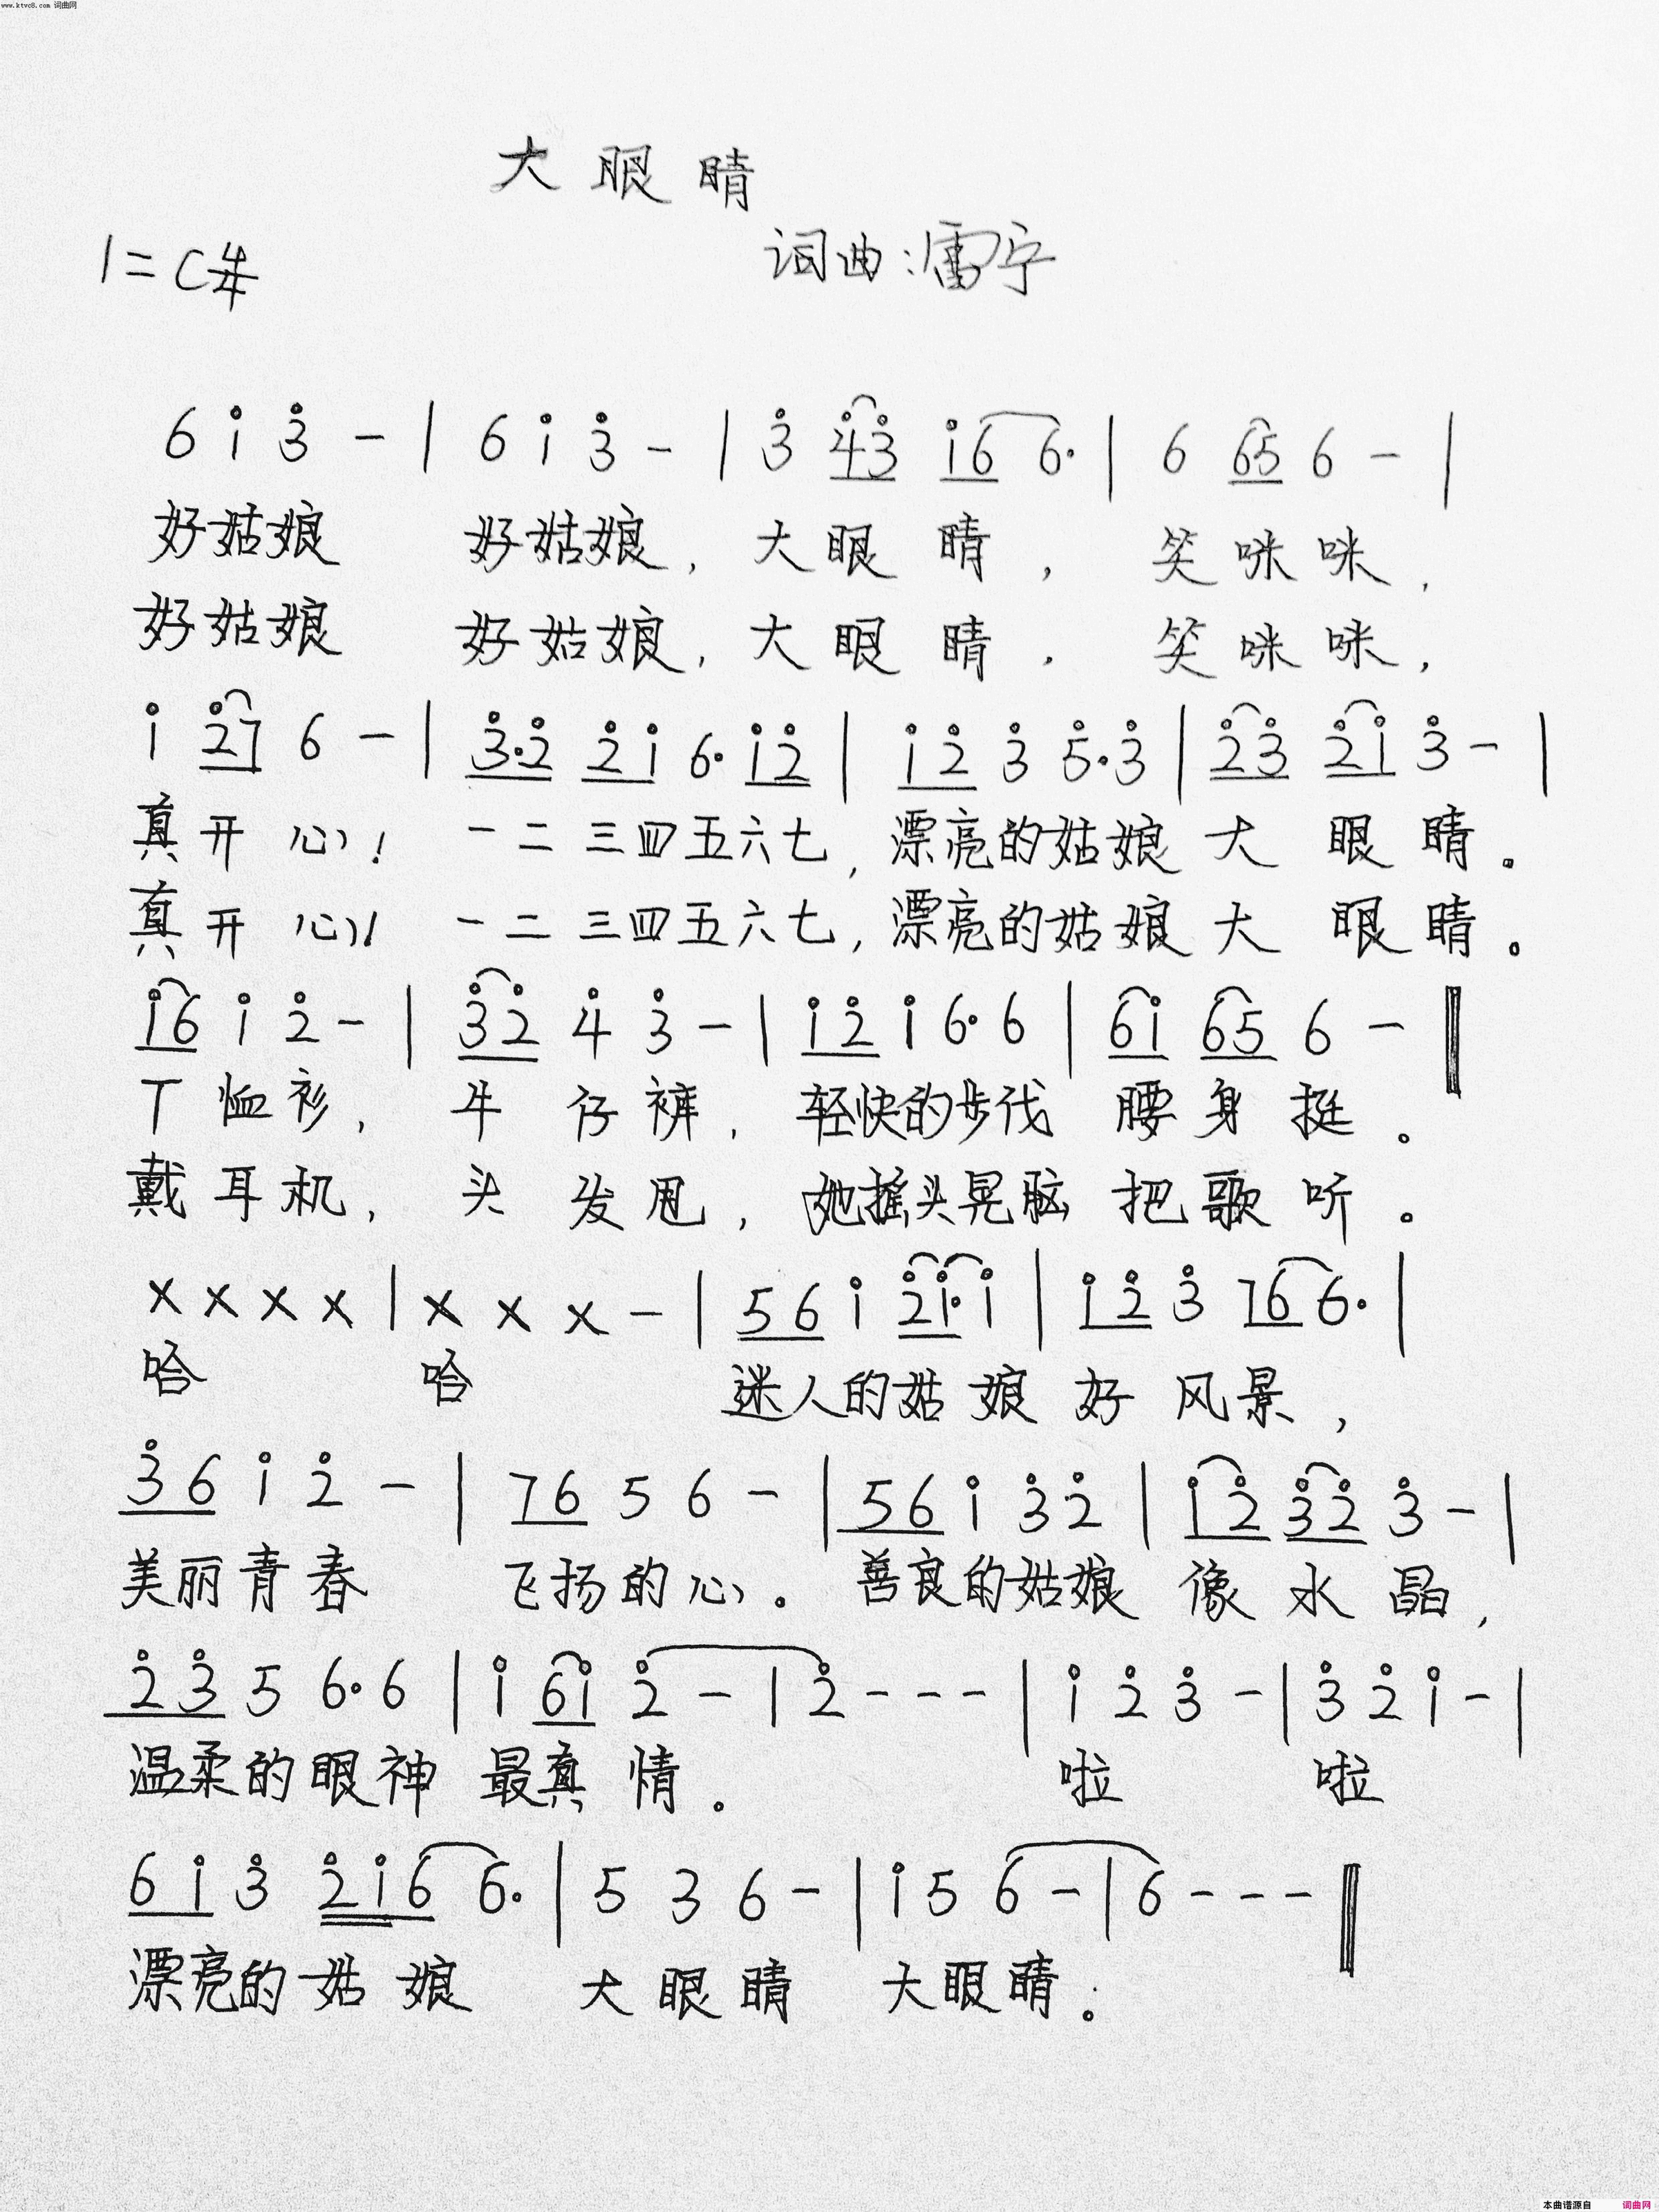 www.ktvc8.com 词曲网
大眼睛
1=C 4/4
词曲:雷宁
6 i̇ 3̇ - | 6 i̇ 3̇ - | 3̇ 4̇3̇ i̇6 6· | 6 65 6 - |
好姑娘 好姑娘, 大眼睛, 笑咪咪,
好姑娘 好姑娘, 大眼睛. 笑咪咪,
i̇ 2̇7 6 - | 3̇·2̇ 2̇i̇ 6· i̇2̇ | i̇2̇ 3̇ 5̇·3̇ | 2̇3̇ 2̇i̇ 3̇ - |
真开心! 一二三四五六七, 漂亮的姑娘大眼睛。
真开心! 一二三四五六七, 漂亮的姑娘大眼睛。
i̇6 i̇ 2̇ - | 3̇2̇ 4̇ 3̇ - | i̇2̇ i̇ 6· 6 | 6i̇ 65 6 - ‖
T恤衫, 牛仔裤, 轻快的步伐 腰身挺。
戴耳机, 头发甩, 她摇头晃脑 把歌听。
x x x x | x x x - | 56 i̇ 2̇i̇· i̇ | i̇2̇ 3̇ 76 6· |
哈 哈 迷人的姑娘好风景,
3̇6 i̇ 2̇ - | 76 5 6 - | 56 i̇ 3̇2̇ | i̇2̇ 3̇2̇ 3̇ - |
美丽青春 飞扬的心。 善良的姑娘 像水晶,
2̇3̇ 5 6· 6 | i̇ 6i̇ 2̇ - | 2̇ - - - | i̇ 2̇ 3̇ - | 3̇ 2̇ i̇ - |
温柔的眼神 最真情。 啦 啦
6i̇ 3̇ 2̇i̇6 6· | 5 3 6 - | i̇ 5 6 - | 6 - - - ‖
漂亮的姑娘 大眼睛 大眼睛。
本曲谱源自 词曲网